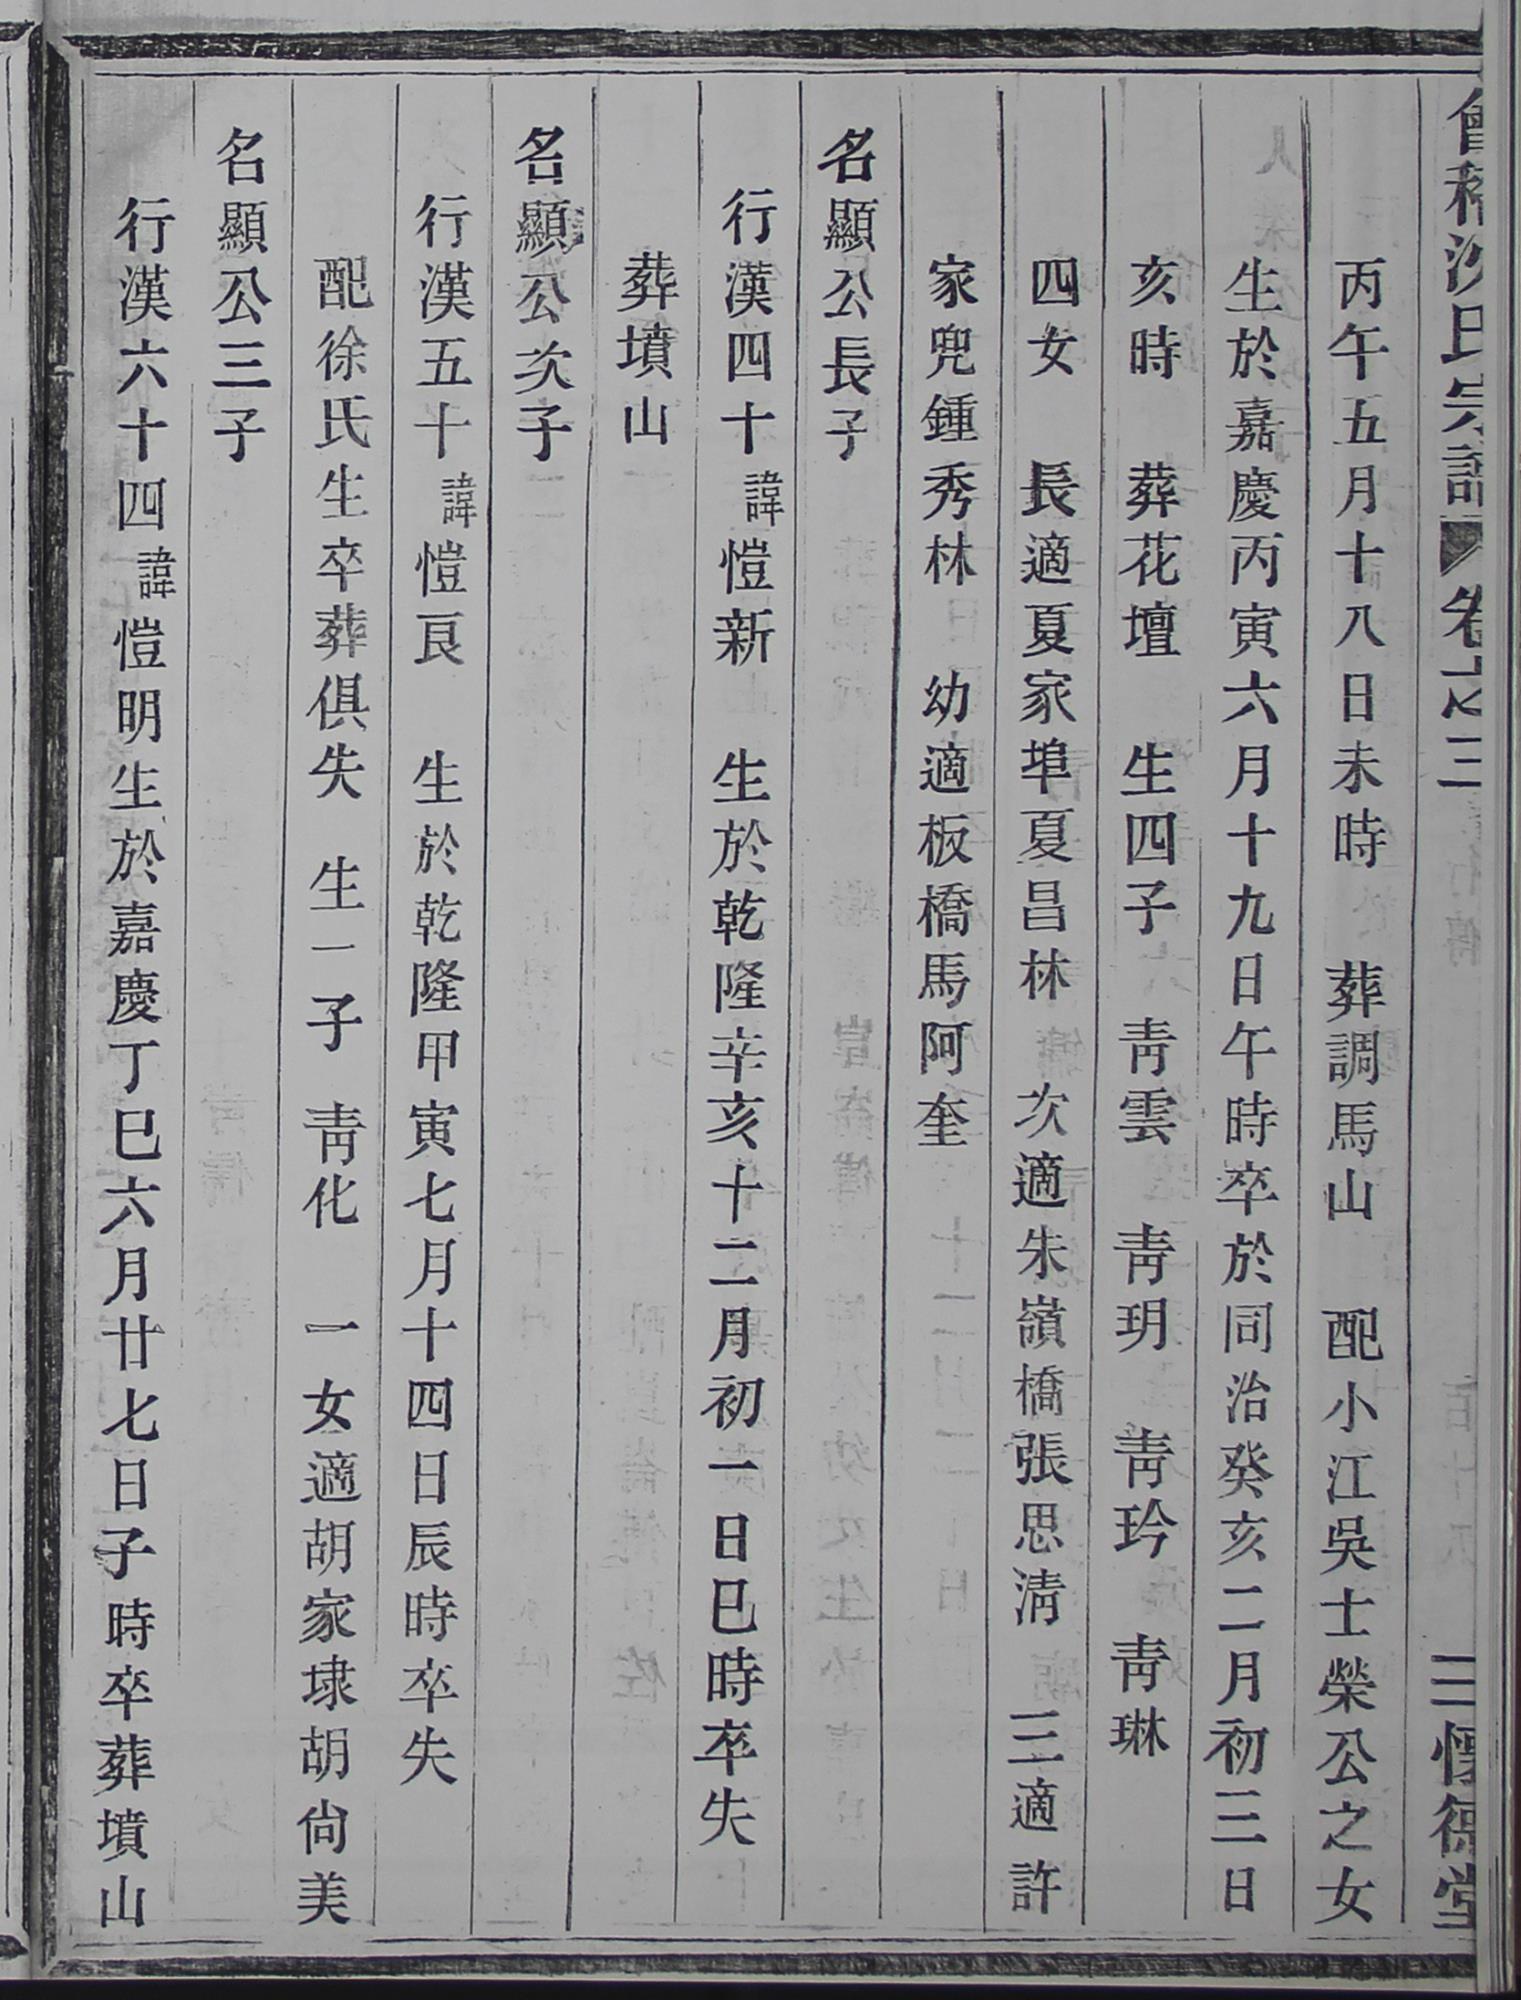 會稽沈氏宗譜 卷之三 三 懷德堂
丙午五月十八日未時 葬調馬山 配小江吳士榮公之女
生於嘉慶丙寅六月十九日午時卒於同治癸亥二月初三日
亥時 葬花壇 生四子 青雲 青玥 青玪 青琳
四女 長適夏家埠夏昌林 次適朱嶺橋張思淸 三適許
家兜鍾秀林 幼適板橋馬阿奎
名顯公長子
行漢四十諱愷新 生於乾隆辛亥十二月初一日巳時卒失
葬墳山
名顯公次子
行漢五十諱愷良 生於乾隆甲寅七月十四日辰時卒失
配徐氏生卒葬俱失 生一子 靑化 一女適胡家埭胡尙美
名顯公三子
行漢六十四諱愷明生於嘉慶丁巳六月廿七日子時卒葬墳山